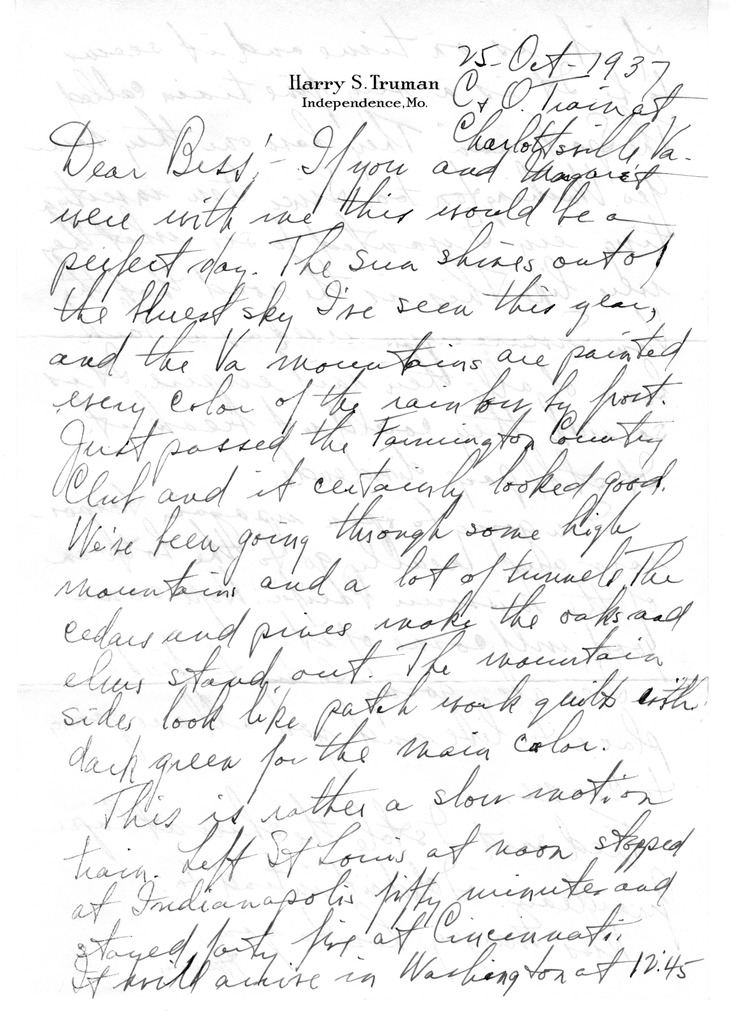 Harry S. Truman
Independence, Mo.
25-Oct-1937
C. & O. Train at
Charlottsville, Va.
Dear Bess:- If you and Margaret
were with me this would be a
perfect day. The sun shines out of
the bluest sky I've seen this year,
and the Va mountains are painted
every color of the rainbow by frost.
Just passed the Farmington Country
Club and it certainly looked good.
We've been going through some high
mountains and a lot of tunnels. The
cedars and pines make the oaks and
elms stand out. The mountain
sides look like patch work quilts with
dark green for the main color.
This is rather a slow motion
train. Left St Louis at noon stopped
at Indianapolis fifty minutes and
stayed forty five at Cincinnati.
It will arrive in Washington at 12:45